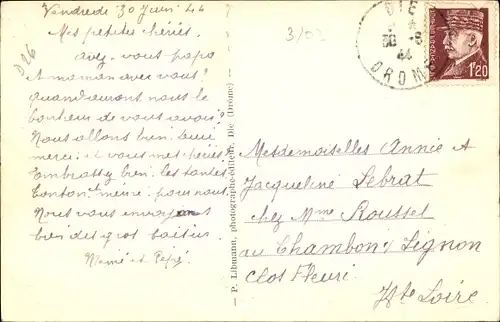 Vendredi 30 Juin 44
Mes petites chéries.
avez-vous papa
et maman avec vous?
quand aurons nous le
bonheur de vous avoir?
Nous allons bien. leur
merci. et vous mes chéries
Embrassez bien. les tantes
Tonton et pour nous
Nous vous envoyons
bien des gros baisers
Mémé et Pépé
D 26
3/03
P. Libmann, photographe-éditeur, Die (Drôme)
DIE
30 -6
44
DROME
1F20
Mesdemoiselles Annie et
Jacqueline Lebrat
chez Mme Rousset
au Chambon s/ Lignon
Clos Fleuri
Hte Loire